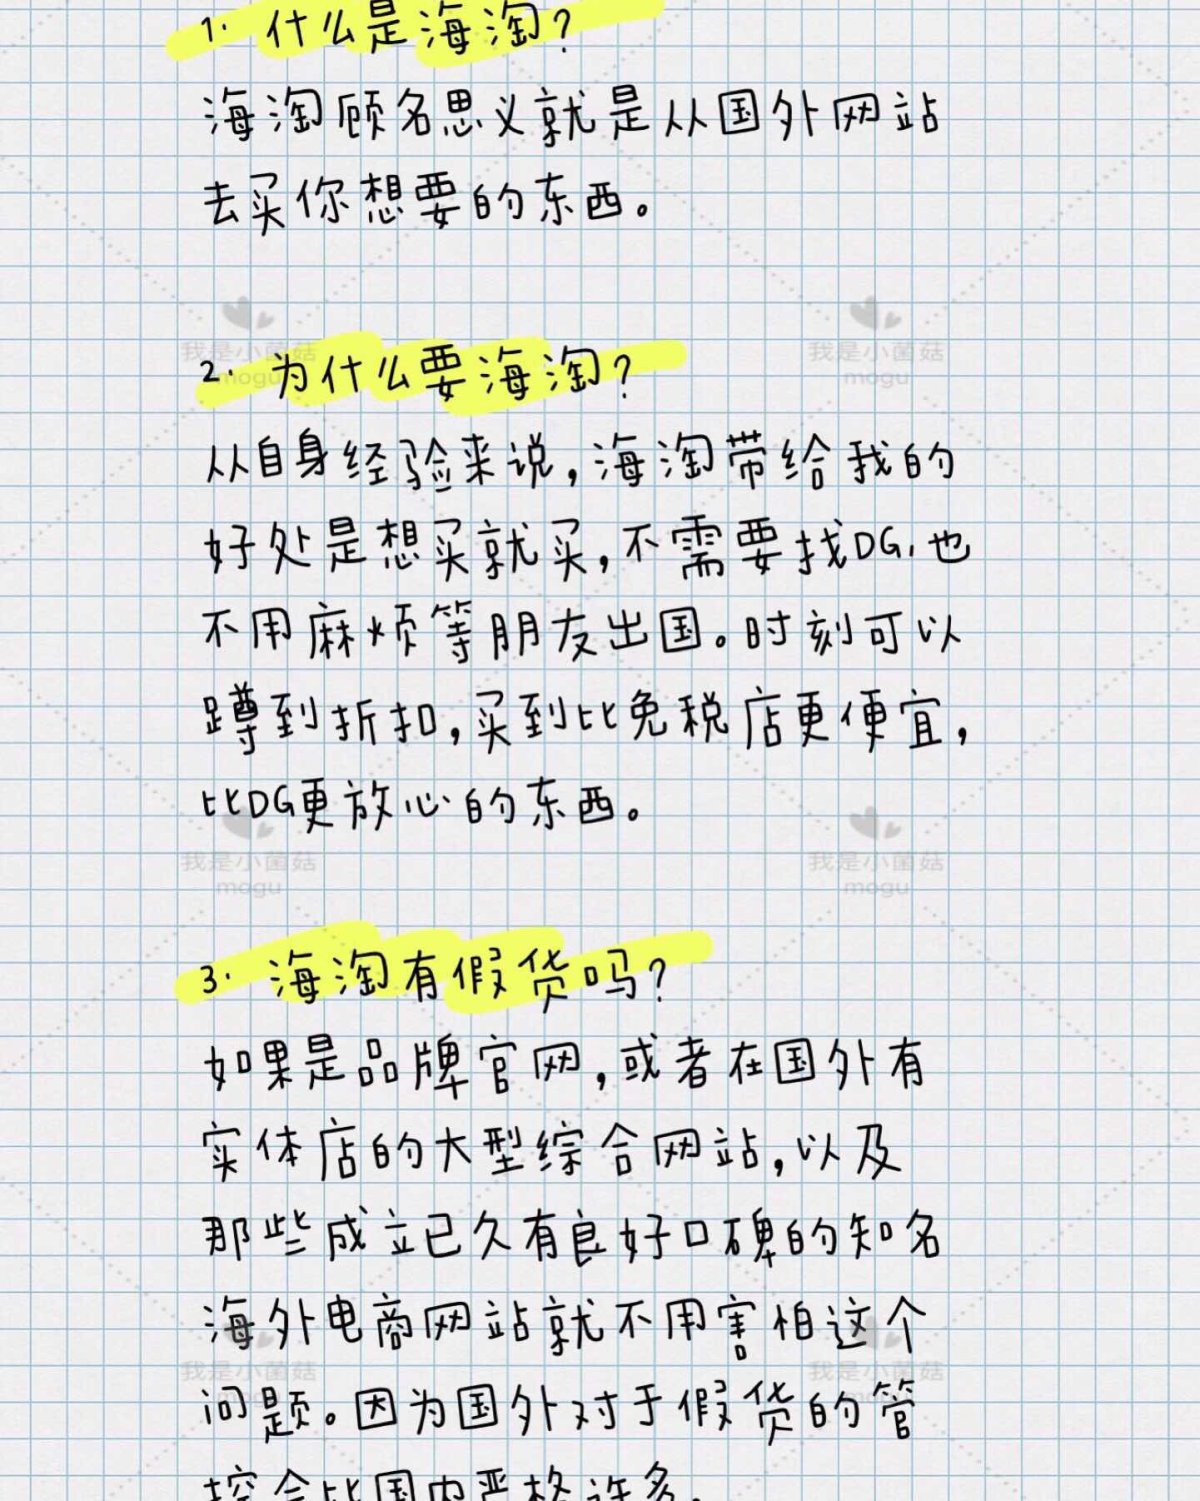 1. 什么是海淘?
海淘顾名思义就是从国外网站
去买你想要的东西。
我是小菌菇
mogu
我是小菌菇
mogu
2. 为什么要海淘?
从自身经验来说,海淘带给我的
好处是想买就买,不需要找DG,也
不用麻烦等朋友出国。时刻可以
蹲到折扣,买到比免税店更便宜,
比DG更放心的东西。
我是小菌菇
mogu
我是小菌菇
mogu
3. 海淘有假货吗?
如果是品牌官网,或者在国外有
实体店的大型综合网站,以及
那些成立已久有良好口碑的知名
海外电商网站就不用害怕这个
我是小菌菇
我是小菌菇
问题。因为国外对于假货的管
控会比国内严格许多。